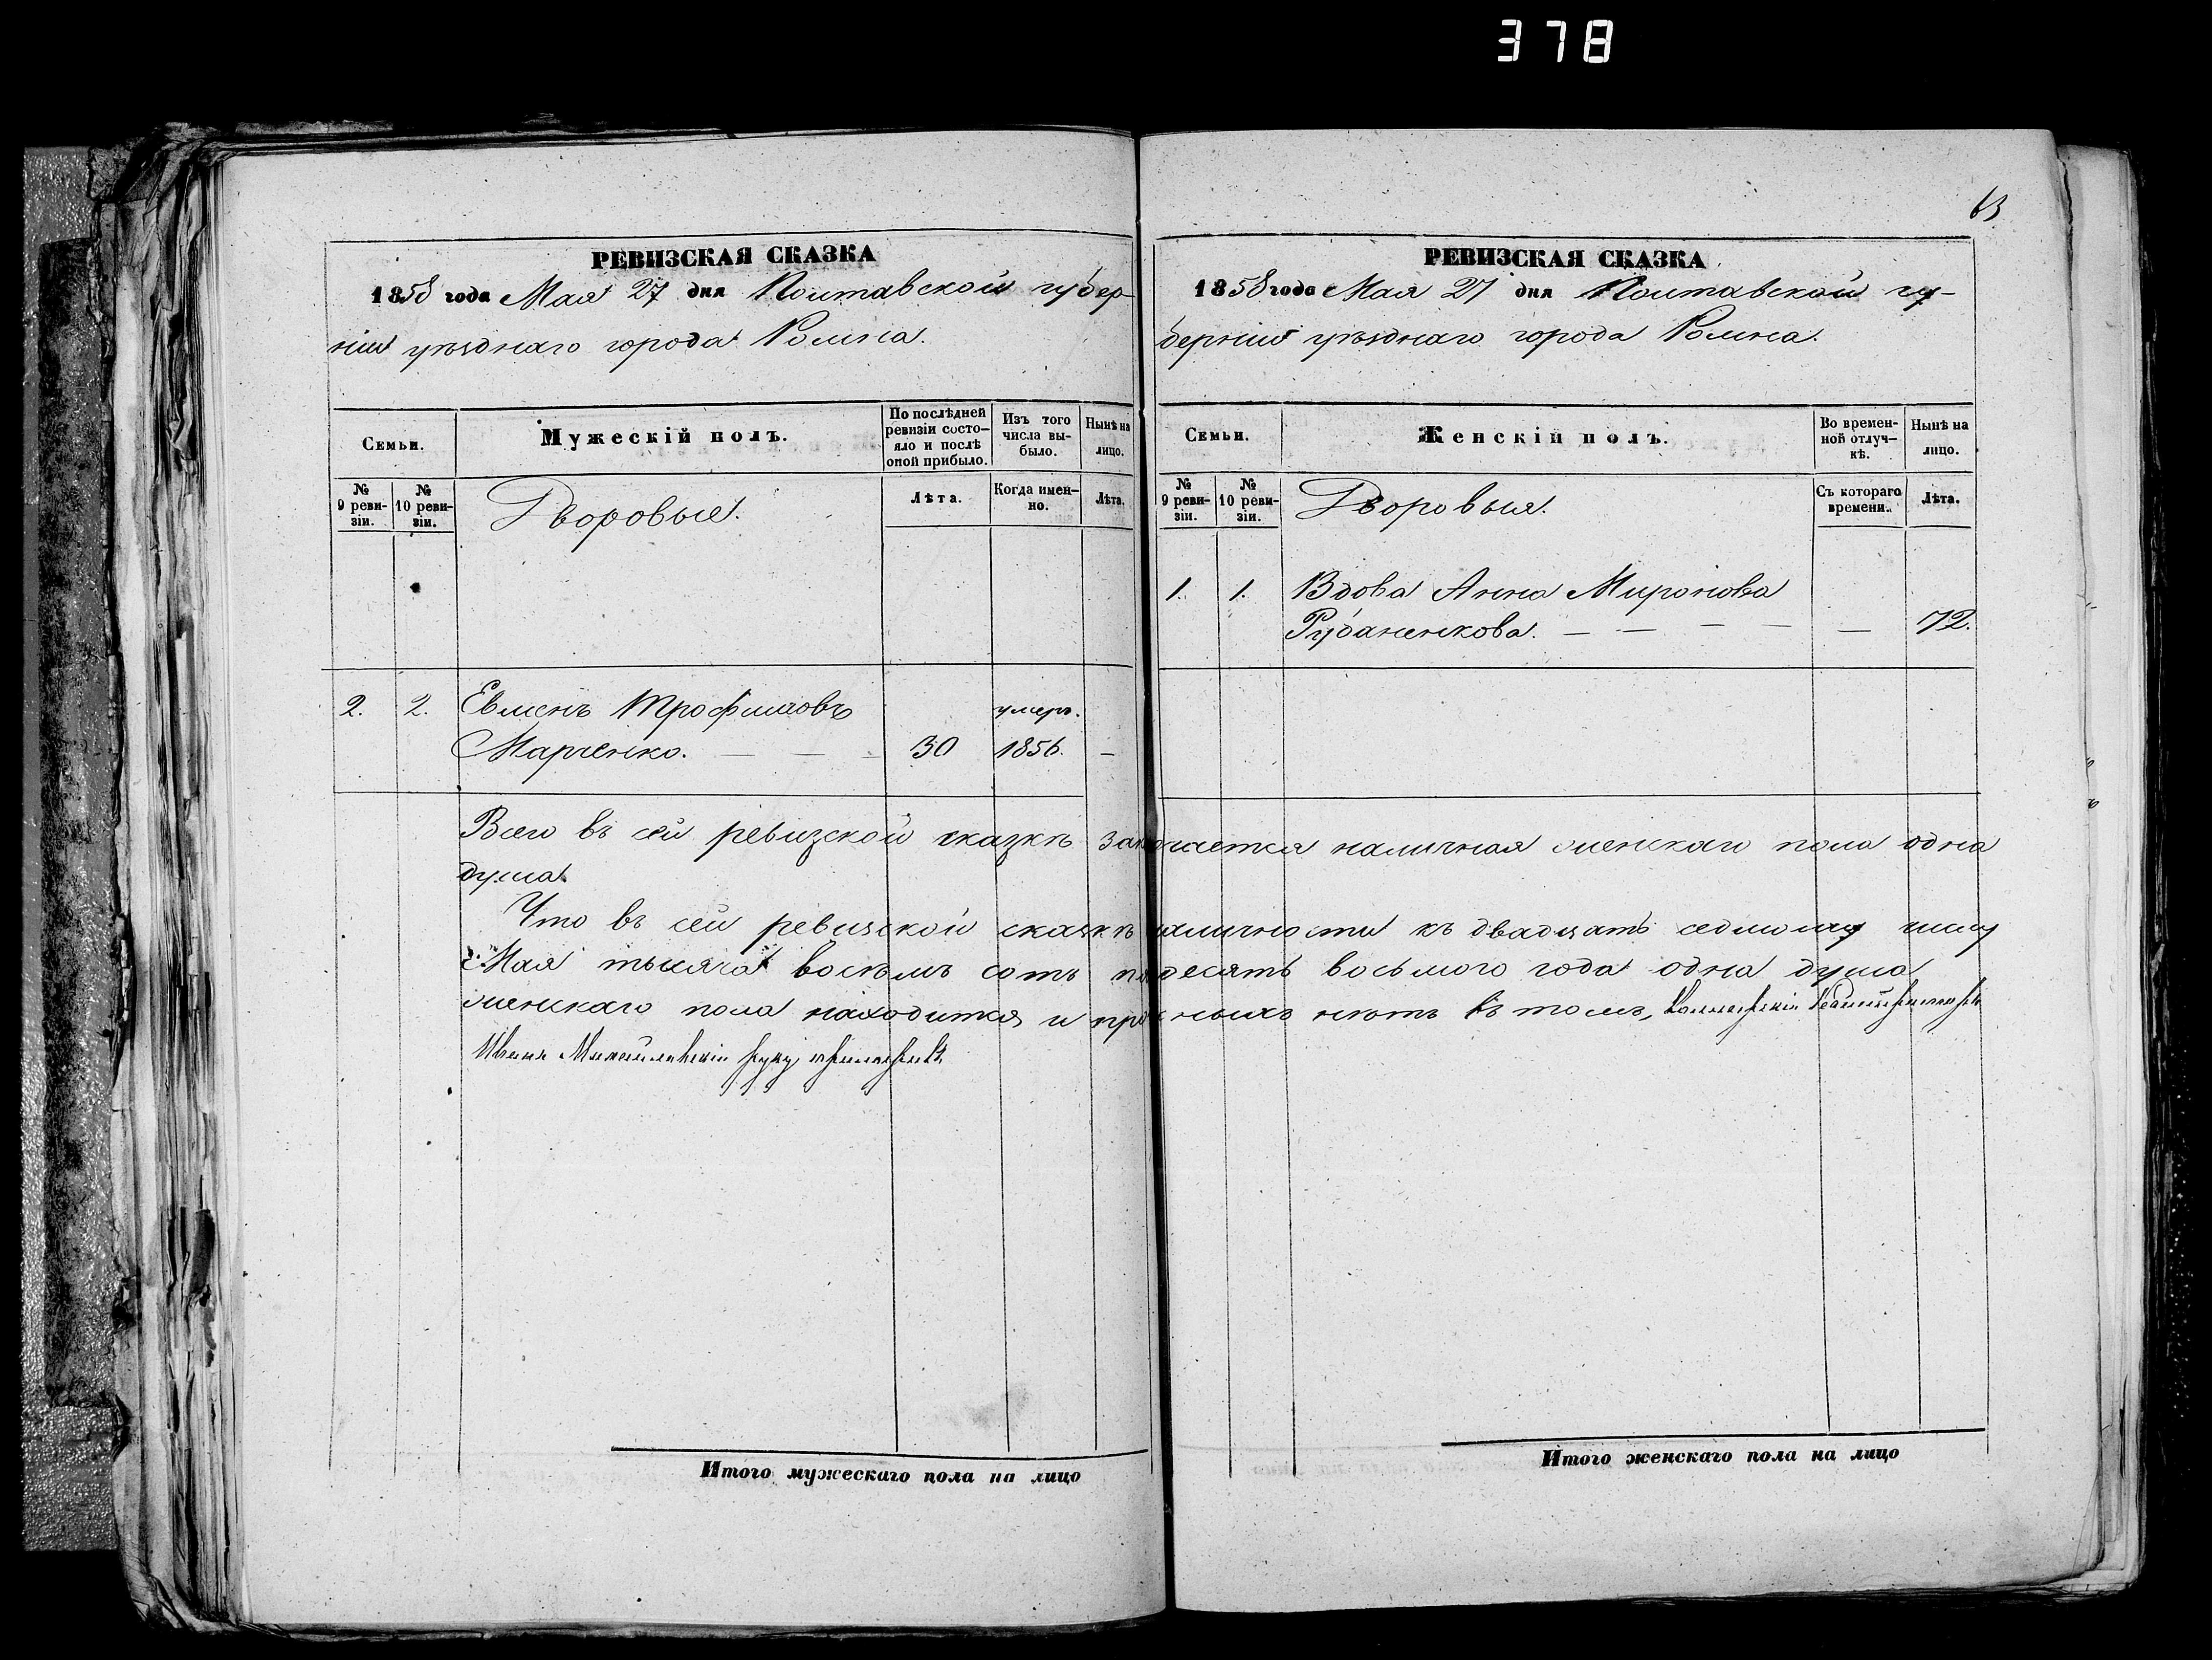 378
63
РЕВИЗСКАЯ СКАЗКА
1858 года Мая 27 дня Полтавской губер-
ніи уѣзднаго города Ромна.
Семьи.
Мужескій полъ.
По послѣдней ревизіи состо-яло и послѣ оной прибыло.
Изъ того числа вы-было.
Нынѣ на лицо.
№ 9 реви-зіи.
№ 10 реви-зіи.
Дворовые.
Лѣта.
Когда имен-но.
Лѣта.
2. 2. Евменъ Трофимовъ умеръ.
Марченко. — — — 30 1856. —
РЕВИЗСКАЯ СКАЗКА
1858 года Мая 27 дня Полтавской гу-
берніи уѣзднаго города Ромна.
Семьи.
Женскій полъ.
Во времен-ной отлуч-кѣ.
Нынѣ на лицо.
№ 9 реви-зіи.
№ 10 реви-зіи.
Дворовыя.
Съ котораго времени.
Лѣта.
1. 1. Вдова Анна Миронова
Рубаненкова. — — — — — 72.
Всего въ сей ревизской сказкѣ наличная женскаго пола одна
душа.
Что въ сей ревизской сказкѣ наличности къ двадцать седьмому числу
Мая тысяча восемь сотъ восьмого года одна душа
женскаго пола находится и нѣтъ въ томъ,
Иванъ Михайловскій руку приложилъ
Итого мужескаго пола на лицо
Итого женскаго пола на лицо